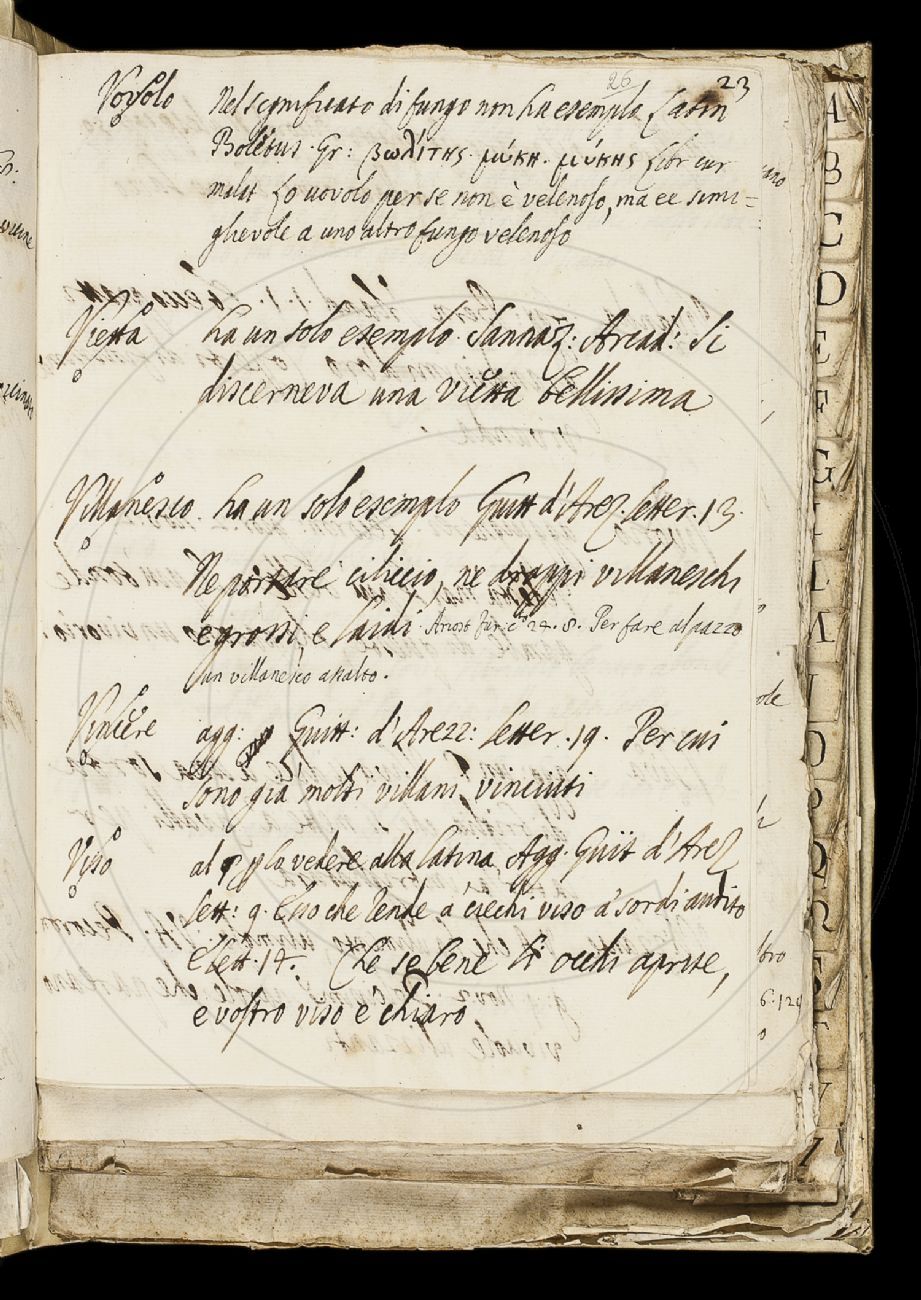 26 23
Vovolo Nel significato di fungo non ha esemplo Latin
Bolétus. Gr: βωλίτης. μύκη. μύκης Libr cur
malat Lo uovolo per se non è velenoso, ma ee simi=
glievole a uno altro fungo velenoso
Vietta ha un solo esemplo. Sannaz: Arcad: Si
discerneva una vietta bellissima
Villanesco ha un solo esemplo Guitt d'Arez. letter. 13.
Ne portare ciliccio, ne drappi villaneschi
e grossi, e laidi. Ariost fur: c. 24. 8. Per fare al pazzo
un villanesco assalto.
Vincere agg: Guitt: d'Arezz: letter. 19. Per cui
sono già molti villani vinciuti
Viso al la vedere alla latina Agg. Guitt d'Arez
lett: 9. che rende á ciechi viso a' sordi audito
E lett. 14. Che se bene li occhi aprite,
e vostro viso è chiaro
ano
ole
bro
6. 124
A
B
C
D
E
F
G